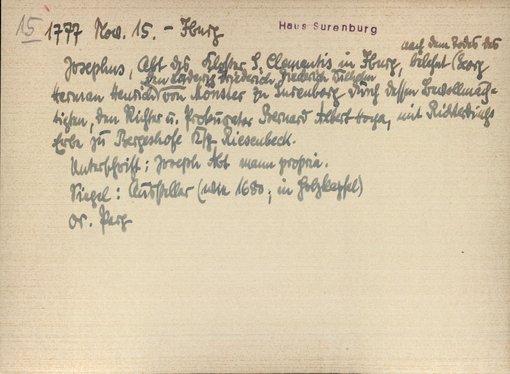 15 1777 Nov. 15. - Iburg
Haus Surenburg
nach dem Tode des
Josephus, Abt des Klosters S. Clementis in Iburg, belehnt Georg
Ludwig Friederich, Friederich Wilhelm
Herman Heinrich von Monster zu Surenborg durch dessen Bevollmäch-
tigten, den Richter u. Prokurator Bernard Albert Hoya, mit Richterdings
Erbe zu Bergeshofe Ksp. Riesenbeck.
Unterschrift: Joseph Abt manu propria.
Siegel: Aussteller (wie 1680; in Holzkapsel)
Or. Perg